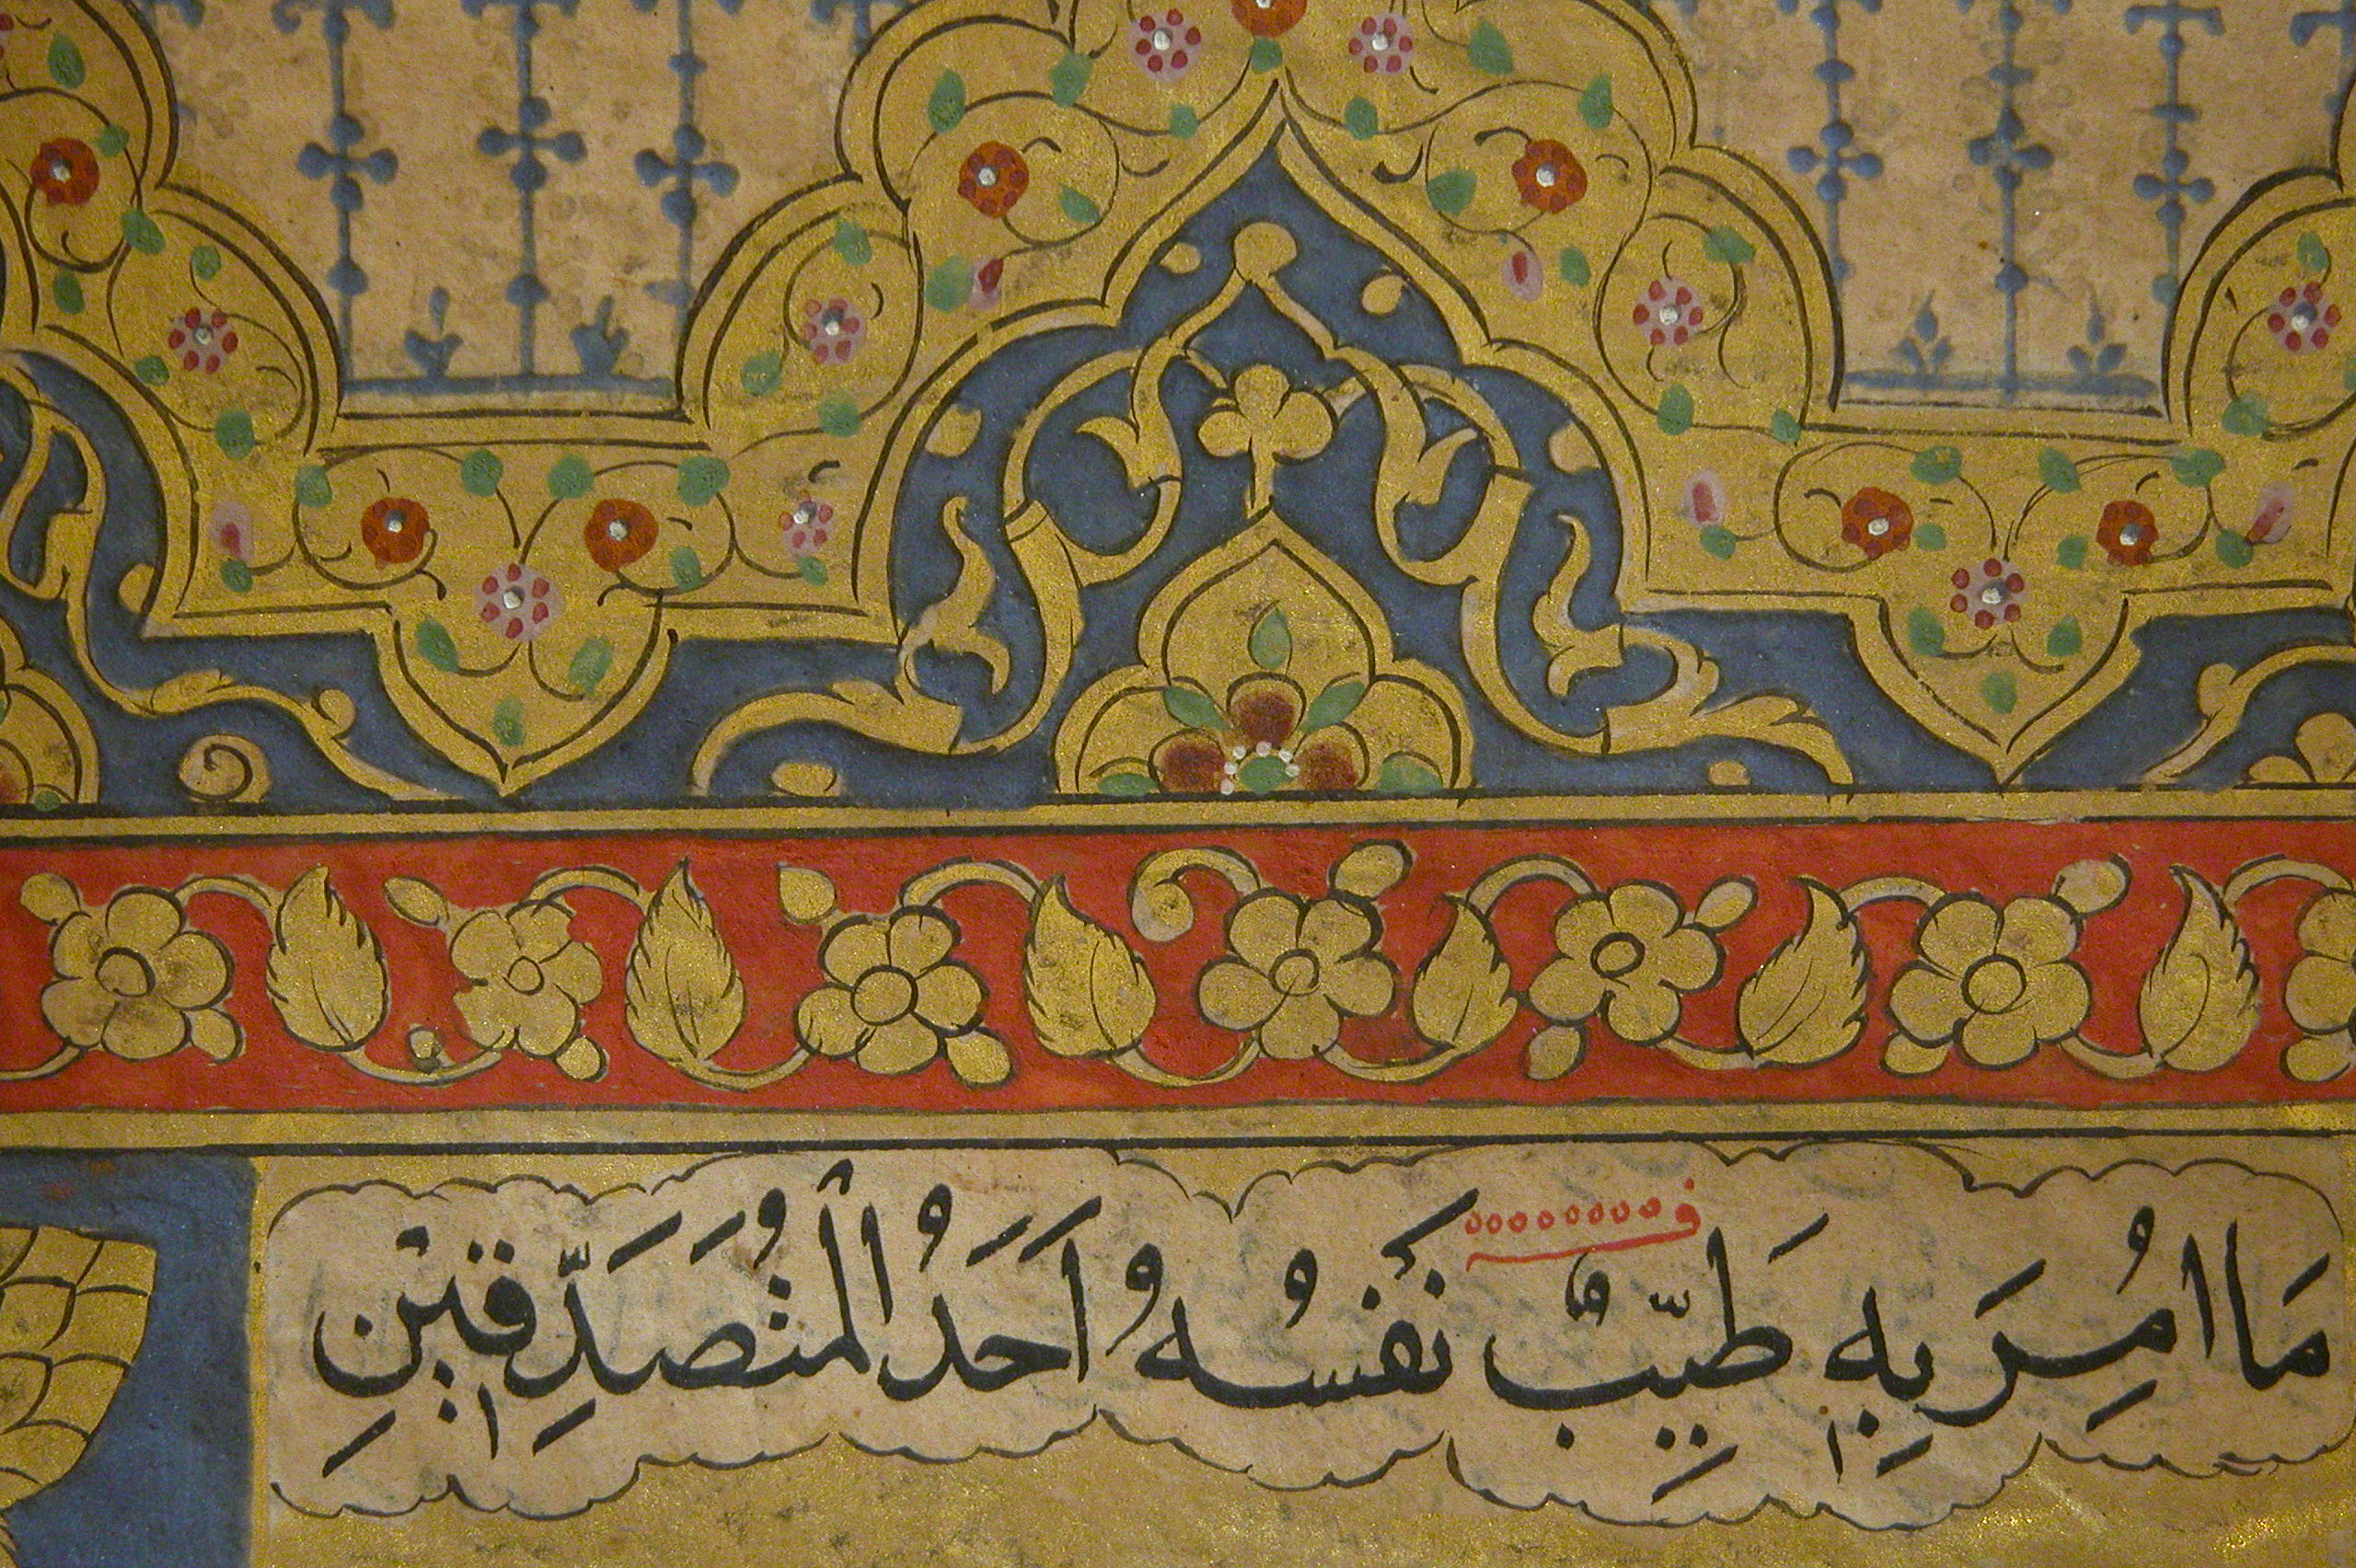 مَا اُمِرَ بِهٖ طَيِّبٌ نَفْسُهُ اَحَدُ الْمُتَصَدِّقٖيْنِ